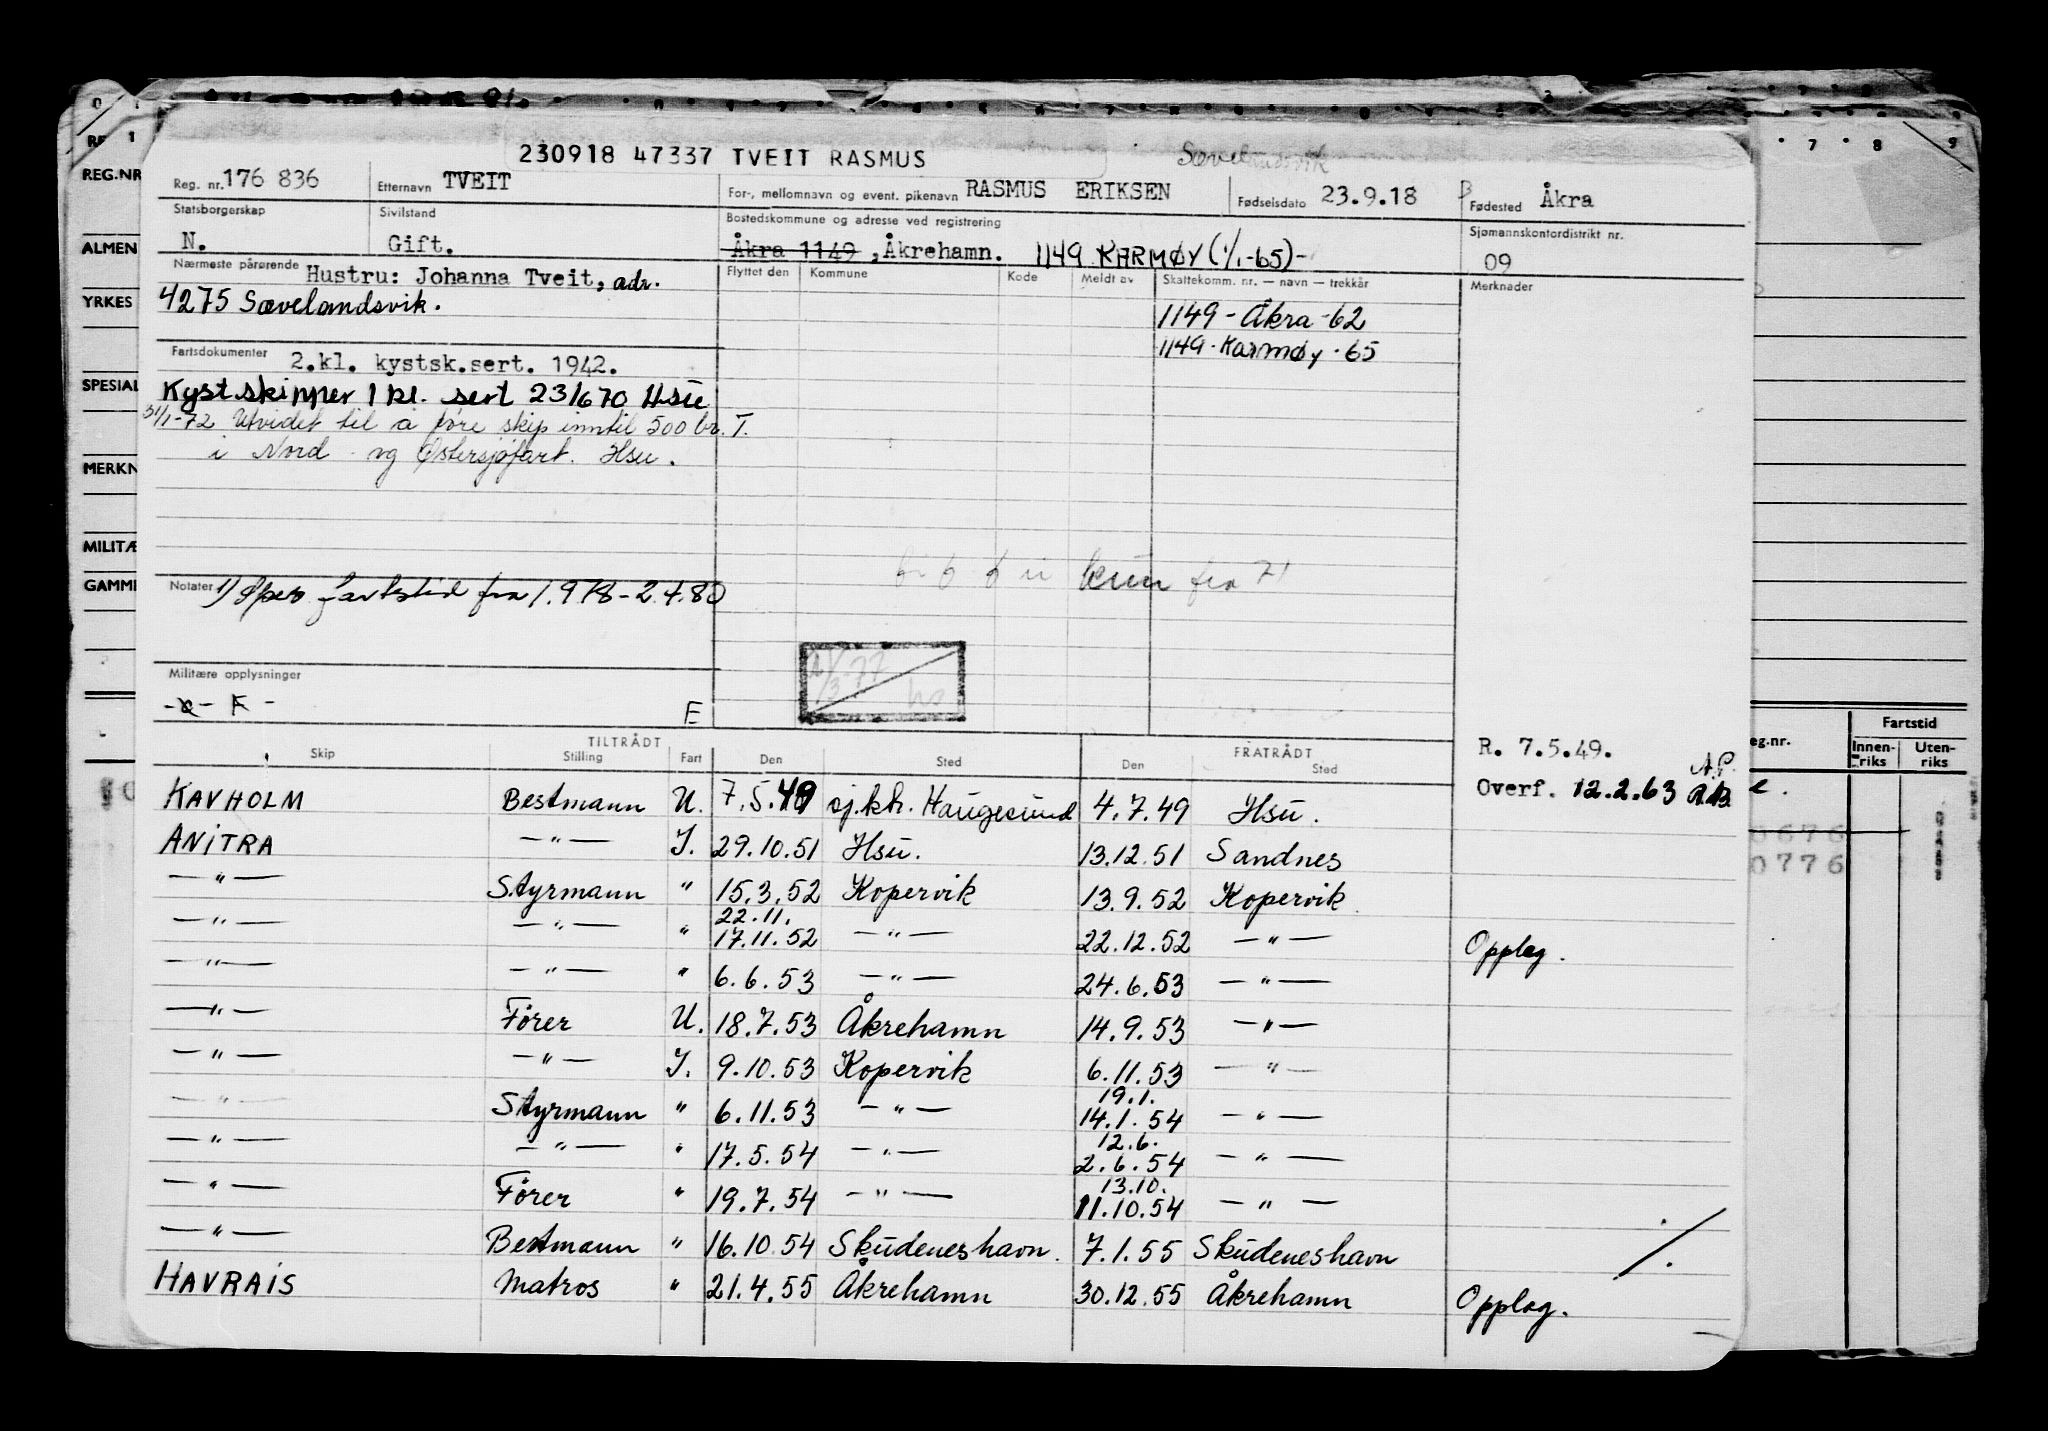 230918 47337 TVEIT RASMUS
Reg. nr. 176 836 Etternavn TVEIT For-, mellomnavn og event. pikenavn RASMUS ERIKSEN Fødselsdato 23.9.18 Fødested Åkra
Statsborgerskap Sivilstand Bostedskommune og adresse ved registrering Sjømannskontordistrikt nr.
N. Gift. Åkra 1149, Åkrehamn. 1149 KARMØY (1/1-65)- 09
Nærmeste pårørende Hustru: Johanna Tveit, adr. Flyttet den Kommune Kode Meldt av Skattekomm. nr. — navn — trekkår Merknader
4275 Sævelandsvik. 1149 - Åkra -62
1149 - Karmøy - 65
Fartsdokumenter 2.kl. kystsk.sert. 1942.
Kystskipper 1 kl. sert 23/6 70 Hsu
31/1-72 Utvidet til å føre skip inntil 500 br. T.
i Nord og Østersjøfart. Hsu.
Notater 1) Sper fartstid fra 1.9.78-2.4.80
fra 71
Militære opplysninger
E
TILTRÅDT FRATRÅDT R. 7.5.49.
Skip Stilling Fart Den Sted Den Sted
Overf. 12.2.63
KAVHOLM Bestmann U. 7.5.49 sj.ktr. Haugesund 4.7.49 Hsu.
ANITRA —"— I. 29.10.51 Hsu. 13.12.51 Sandnes
—"— Styrmann " 15.3.52 Kopervik 13.9.52 Kopervik
22.11.
—"— —"— " 17.11.52 —"— 22.12.52 —"— Opplag.
—"— —"— " 6.6.53 —"— 24.6.53 —"—
—"— Förer U. 18.7.53 Åkrehamn 14.9.53 —"—
—"— —"— I. 9.10.53 Kopervik 6.11.53 —"—
19.1.
—"— Styrmann " 6.11.53 —"— 14.1.54 —"—
12.6.
—"— —"— " 17.5.54 —"— 2.6.54 —"—
13.10.
—"— Förer " 19.7.54 —"— 11.10.54 —"—
—"— Bestmann " 16.10.54 Skudeneshavn. 7.1.55 Skudeneshavn
HAVRAIS Matros " 21.4.55 Åkrehamn 30.12.55 Åkrehamn Opplag.
REG.NR
ALMEN
YRKES
SPESIAL
MERKN
MILITÆ
GAMME
7 8 9
eg.nr. Fartstid
Innen-riks Uten-riks
0676
0776